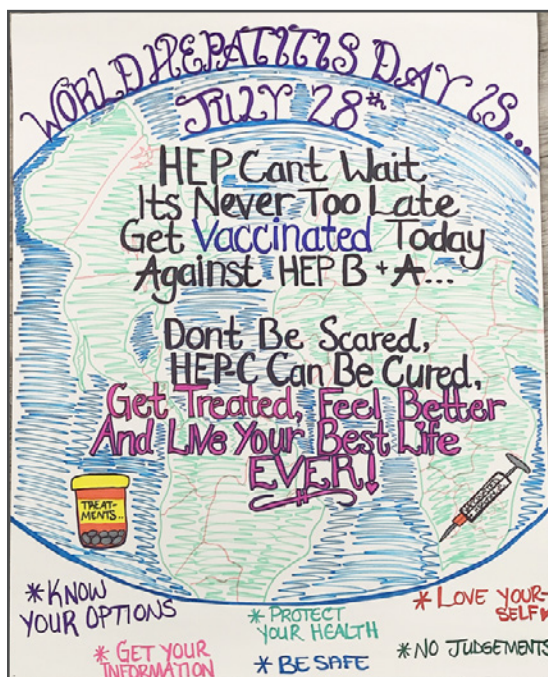 WORLD HEPATITIS DAY IS...
JULY 28th
HEP Cant Wait
Its Never Too Late
Get Vaccinated Today
Against HEP B + A...
Dont Be Scared,
HEP-C Can Be Cured,
Get Treated, Feel Better
And Live Your Best Life
EVER!
TREAT-
MENTS..
* KNOW
YOUR OPTIONS
* PROTECT
YOUR HEALTH
* LOVE YOUR-
SELF
* GET YOUR
INFORMATION
* BE SAFE
* NO JUDGEMENTS